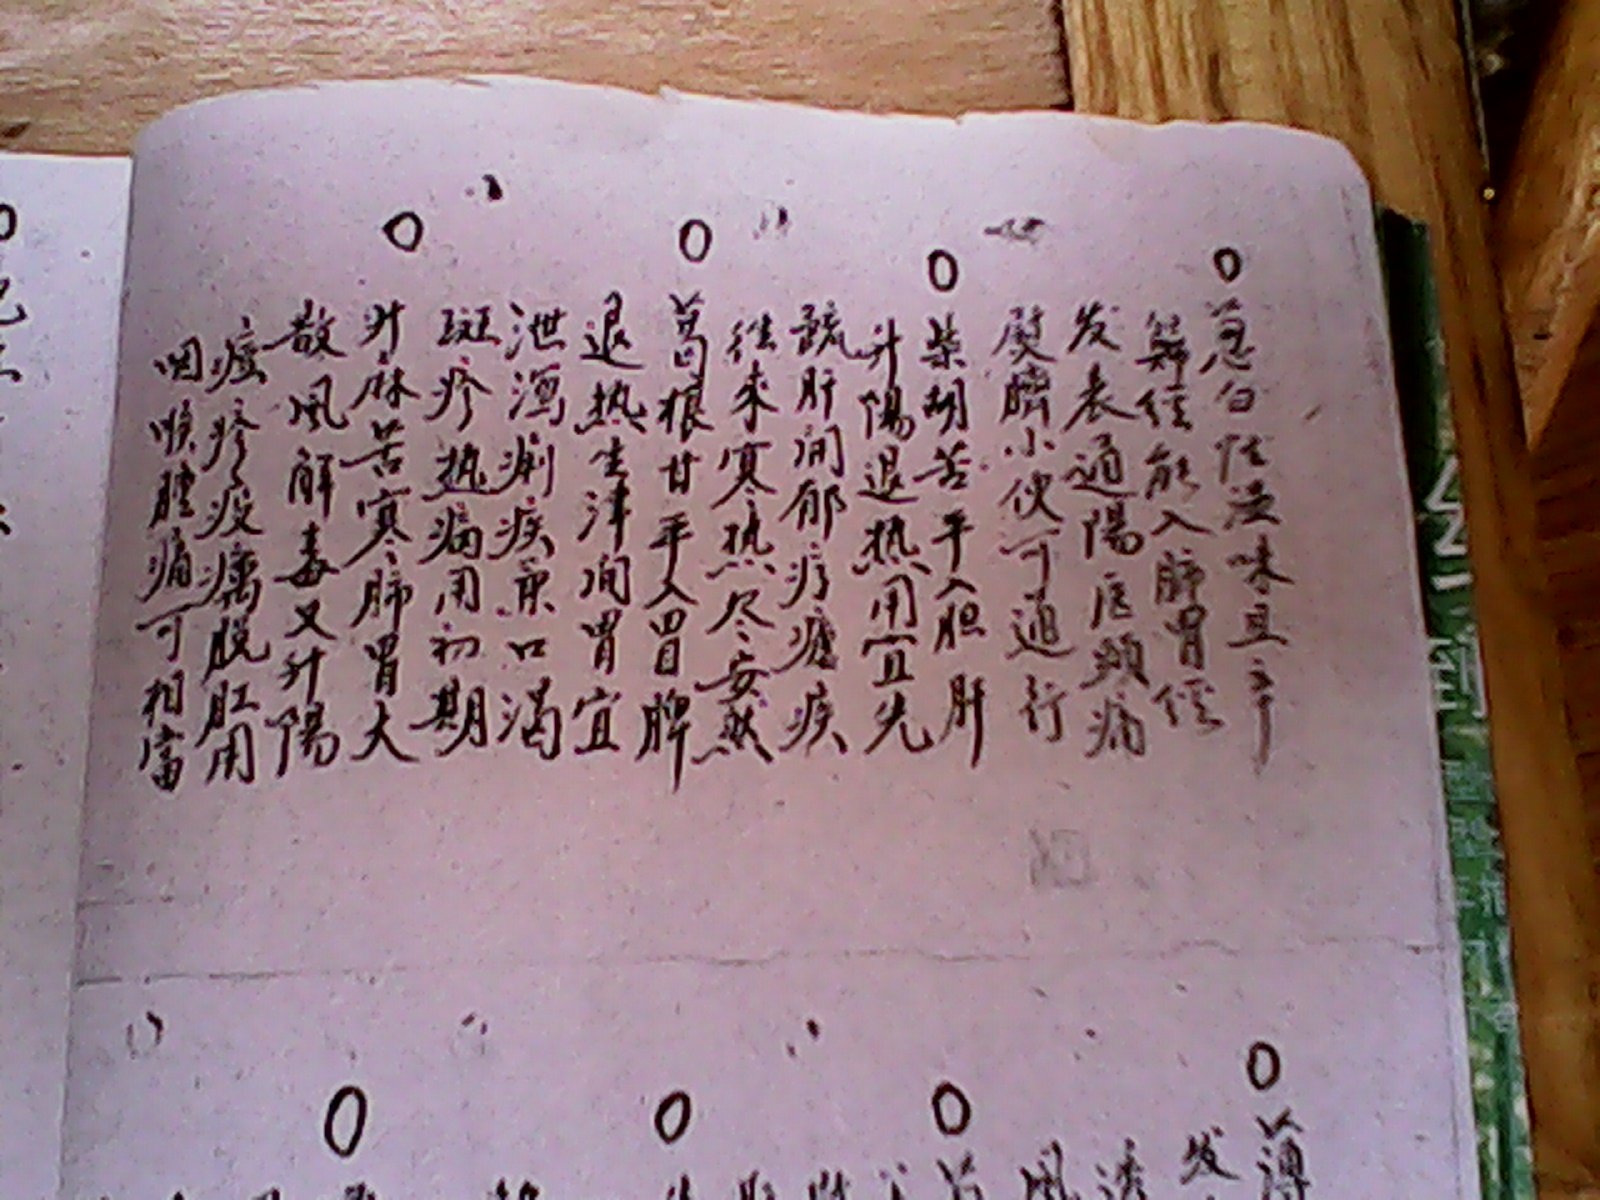 葱白性温味且辛
解经能入肺胃经
发表通陽医頭痛
熨臍小便可通行
柴胡苦平入胆肝
升陽退热用宜先
疏肝间郁疗瘧疾
往来寒热尽安然
葛根甘平入胃脾
退热生津间胃宜
泄瀉痢疾兼口渴
斑疹热病用初期
升麻苦寒肺胃大
散風解毒又升陽
痘疹疫癘脱肛用
咽喉腫痛可相當
薄
发
透
風